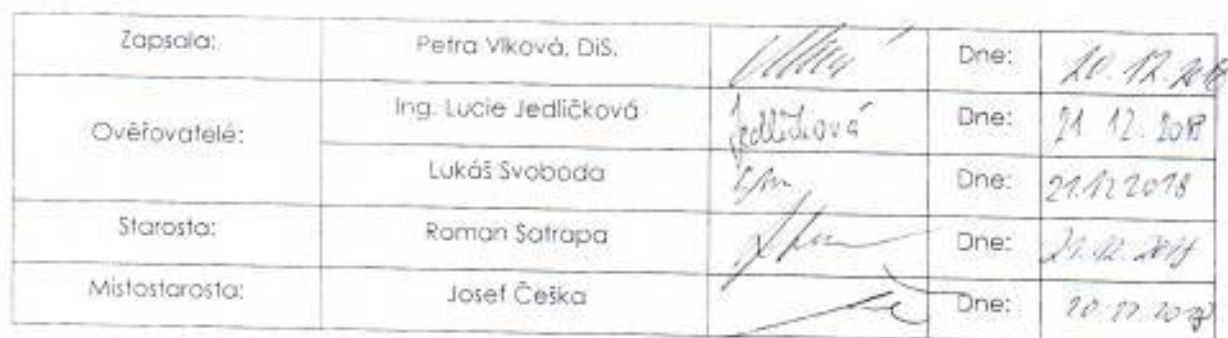 Zapsala: Petra Vlková, DiS. Dne: 20.12.2018
Ing. Lucie Jedličková Jedličková Dne: 21.12.2018
Ověřovatelé:
Lukáš Svoboda Dne: 21.12.2018
Starosta: Roman Satrapa Dne: 21.12.2018
Místostarosta: Josef Češka Dne: 20.12.2018